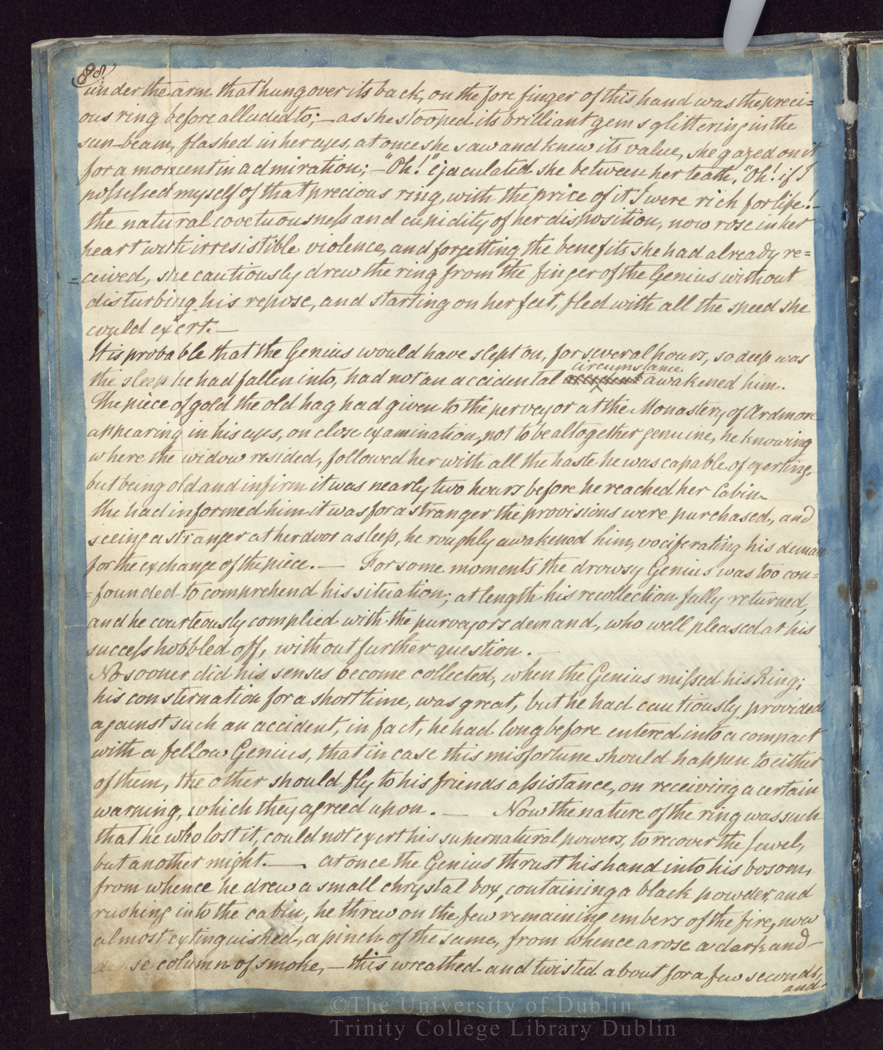 88
under the arm that hung over its back, on the fore finger of this hand was the preci=
ous ring before alluded to; — as she stooped its brilliant gems glittering in the
sun-beam, flashed in her eyes, at once she saw and knew its value, she gazed on it
for a moment in admiration; — "Oh!" ejaculated she between her teath, "Oh! if I
possessed myself of that precious ring, with the price of it I were rich for life! —
the natural covetuousness and cupidity of her disposition, now rose in her
heart with irresistible violence, and forgetting the benefits she had already re=
=ceived, she cautiously drew the ring from the finger of the Genius without
disturbing his repose, and starting on her feet, fled with all the speed she
could exert. —
It is probable that the Genius would have slept on, for several hours, so deep was
circumstance
the sleep he had fallen into, had not an accidental awakened him.
The piece of gold the old hag had given to the purveyor at the Monastery of Ardmore
appearing in his eyes, on close examination, not to be altogether genuine, he knowing
where the widow resided, followed her with all the haste he was capable of exerting,
but being old and infirm it was nearly two hours before he reached her Cabin.
She had informed him it was for a stranger the provisions were purchased, and
seeing a stranger at her door asleep, he roughly awakened him, vociferating his deman
for the exchange of the piece. — For some moments the drowsy Genius was too con=
=founded to comprehend his situation; at length his recollection fully returned,
and he courteously complied with the purveyors demand, who well pleased at his
success hobbled off, without further question. —
No sooner did his senses become collected, when the Genius missed his Ring;
his consternation for a short time, was great, but he had cautiously provided
against such an accident, in fact, he had long before entered into a compact
with a fellow Genius, that in case this misfortune should happen to either
of them, the other should fly to his friends assistance, on receiving a certain
warning, which they agreed upon. — Now the nature of the ring was such
that he who lost it, could not exert his supernatural powers, to recover the Jewel,
but another might. — at once the Genius thrust his hand into his bosom,
from whence he drew a small chrystal box, containing a black powder, and
rushing into the cabin, he threw on the few remaining embers of the fire, now
almost extinguished, a pinch of the same, from whence arose a dark and —
se column of smoke, — this wreathed and twisted about for a few seconds,
and
©The University of Dublin
Trinity College Library Dublin